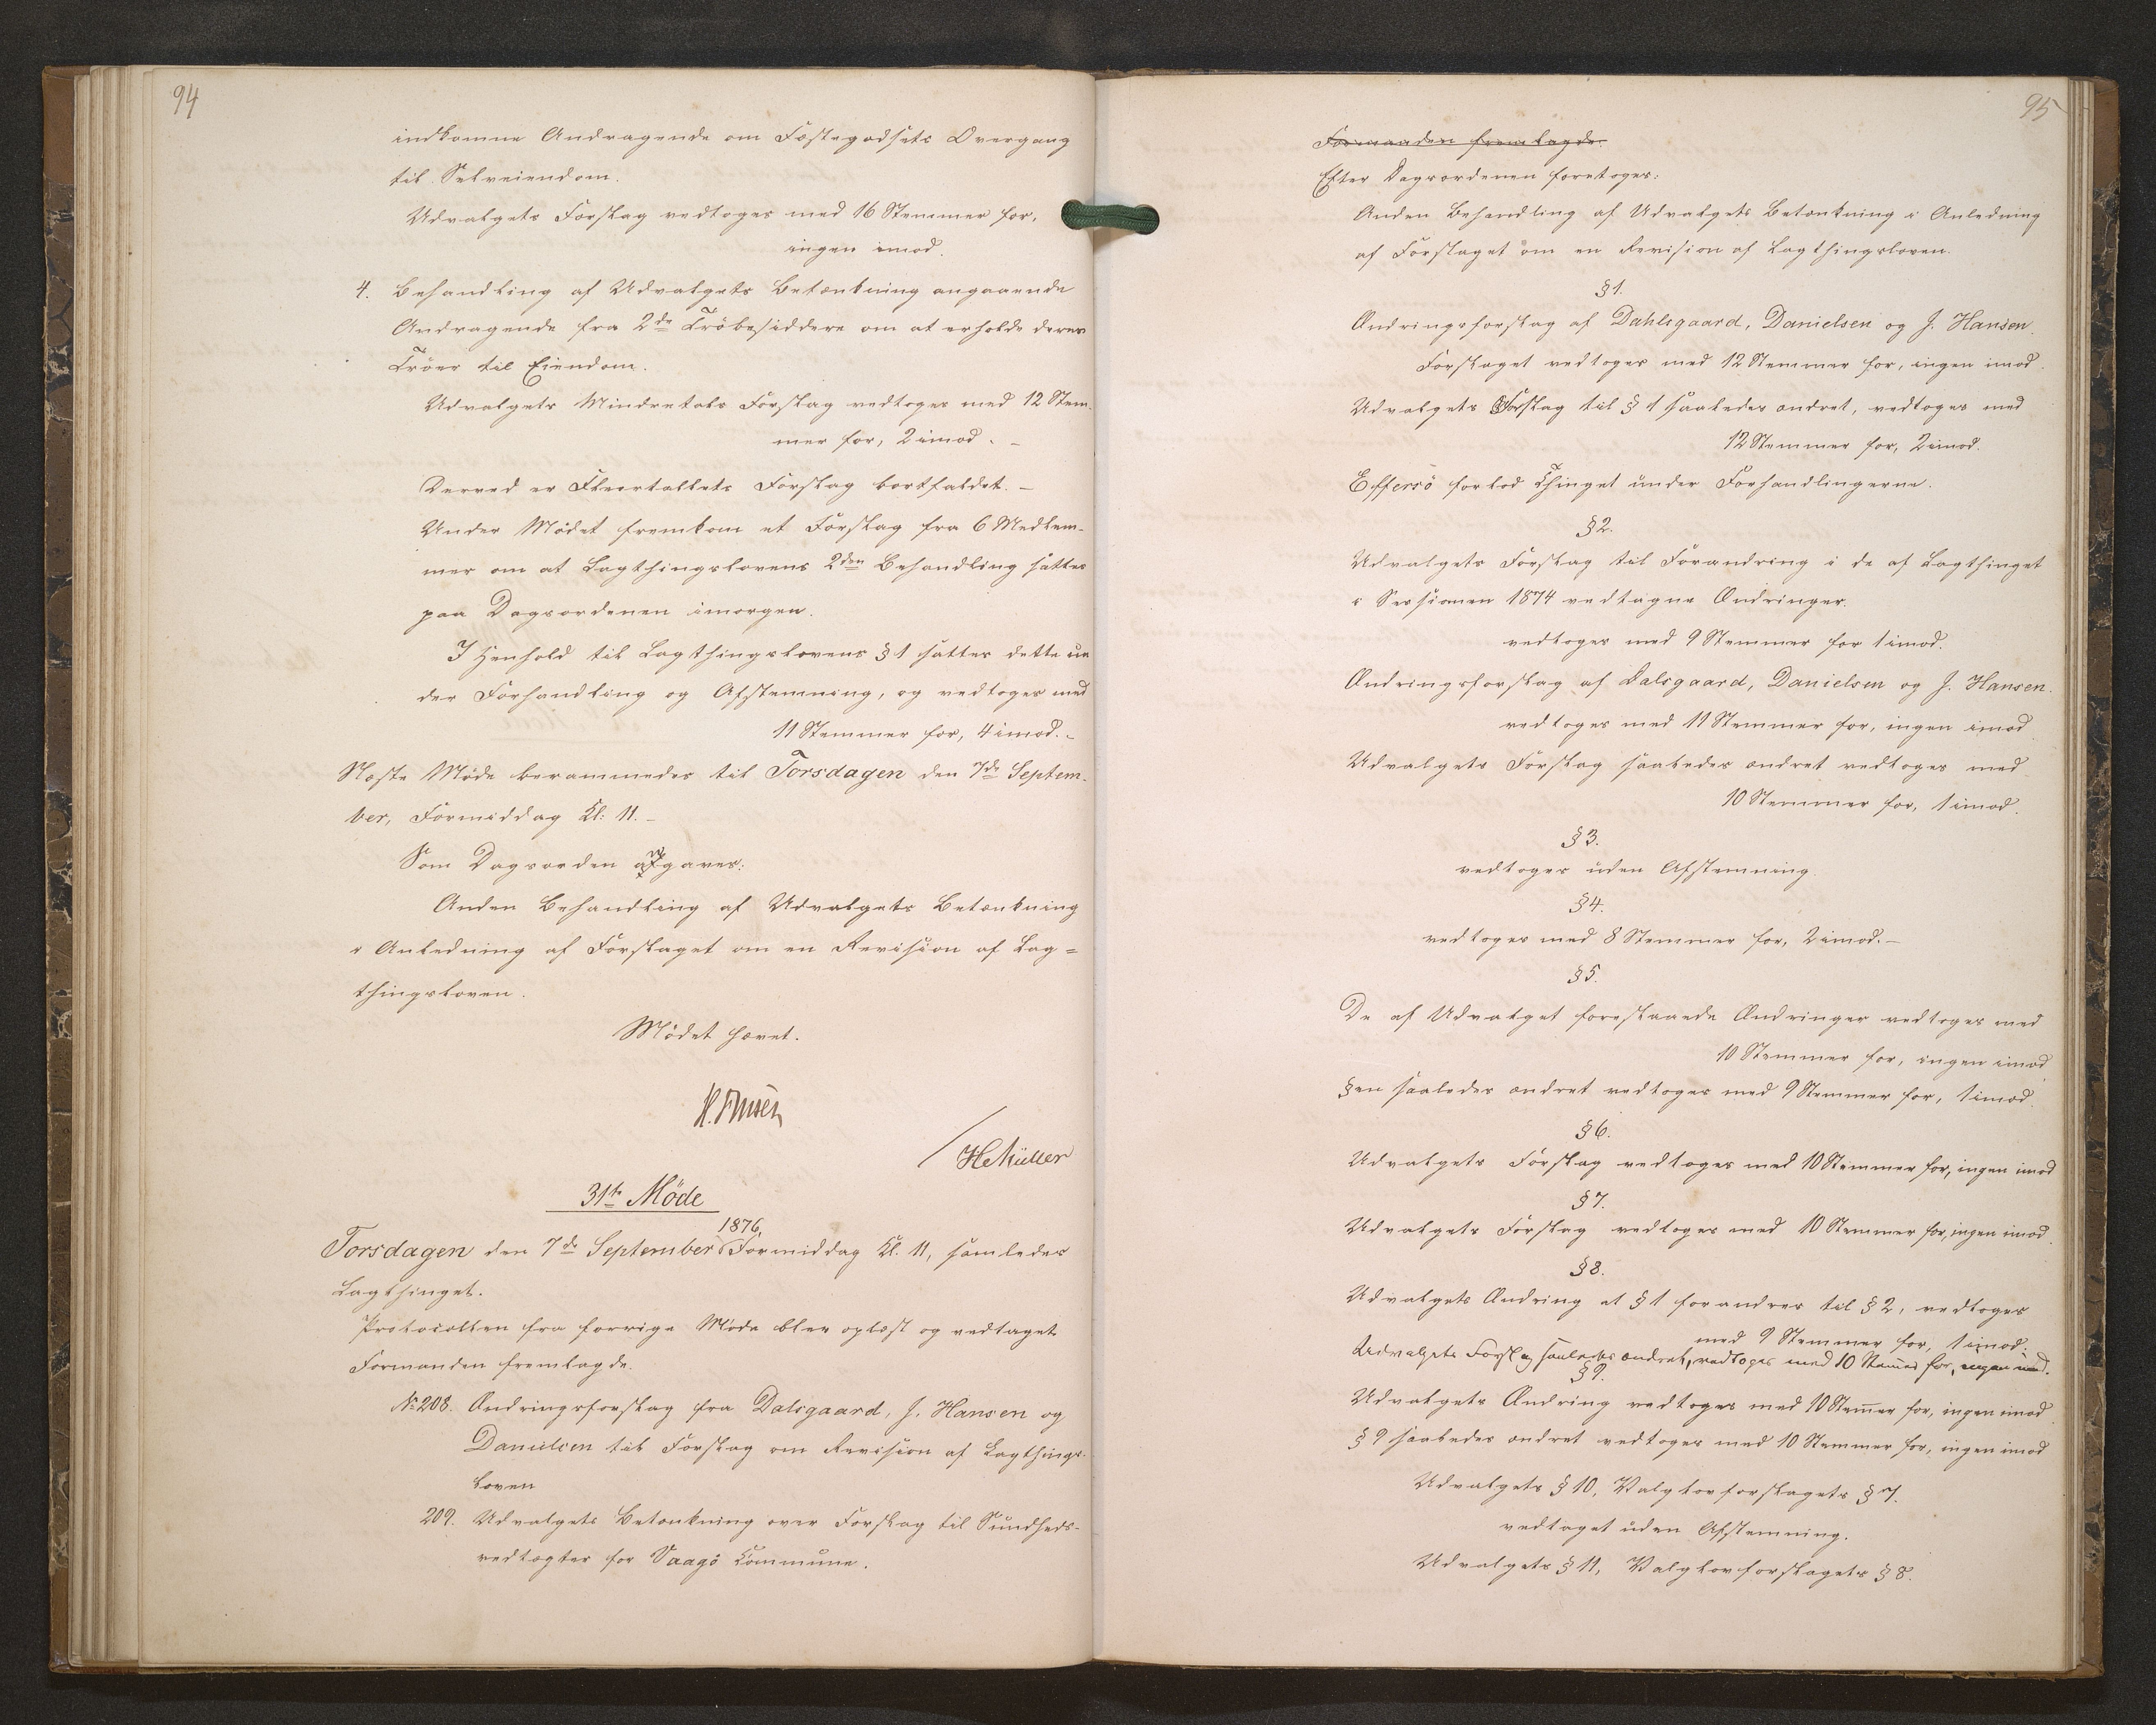 94
indkomne Andragende om Fæstegodsets Overgang
til Selveiendom.
Udvalgets Forslag vedtoges med 16 Stemmer for,
ingen imod.
4. Behandling af Udvalgets Betænkning angaaende
Andragende fra 2de Tröbesiddere om at erholde deres
Tröer til Eiendom.
Udvalgets Mindretals Forslag vedtoges med 12 Stem-
mer for, 2 imod. -
Derved er Fleertallets Forslag bortfaldet. -
Under Mödet fremkom et Forslag fra 6 Medlem-
mer om at Lagthingslovens 2den Behandling sættes
paa Dagsordenen imorgen.
I Henhold til Lagthingslovens § 1 sattes dette un
der Forhandling og Afstemning, og vedtoges med
11 Stemmer for, 4 imod. -
Næste Möde berammedes til Torsdagen den 7de Septem-
ber, Formiddag Kl: 11. -
Som Dagsorden opgaves:
Anden Behandling af Udvalgets Betænkning
i Anledning af Forslaget om en Revision af Lag=
thingsloven.
Mödet hævet.
H. Finsen
/ HcMüller
31te Möde
1876,
Torsdagen den 7de September Formiddag Kl. 11, samledes
Lagthinget.
Protocollen fra forrige Möde blev oplæst og vedtaget.
Formanden fremlagde.
No 208. Ændringsforslag fra Dalsgaard, J. Hansen og
Danielsen til Forslag om Revision af Lagthings-
loven
209. Udvalgets Betænkning over Forslag til Sundheds-
vedtægter for Vaagö Kommune.
95
Formanden fremlagde.
Efter Dagsordenen foretoges:
Anden Behandling af Udvalgets Betænkning i Anledning
af Forslaget om en Revision af Lagthingsloven.
§ 1.
Ændringsforslag af Dahlsgaard, Danielsen og J. Hansen.
Forslaget vedtoges med 12 Stemmer for, ingen imod.
Udvalgets Forslag til § 1 saaledes ændret, vedtoges med
12 Stemmer for, 2 imod.
Effersö forlod Thinget under Forhandlingerne.
§ 2.
Udvalgets Forslag til Forandring i de af Lagthinget
i Sessionen 1874 vedtagne Ændringer.
vedtoges med 9 Stemmer for 1 imod.
Ændringsforslag af Dalsgaard, Danielsen og J. Hansen.
vedtoges med 11 Stemmer for, ingen imod
Udvalgets Forslag saaledes ændret vedtoges med
10 Stemmer for, 1 imod.
§ 3.
vedtoges uden Afstemning.
§ 4.
vedtoges med 8 Stemmer for, 2 imod. -
§ 5.
De af Udvalget foreslaaede Ændringer vedtoges med
10 Stemmer for, ingen imod
§en saaledes ændret vedtoges med 9 Stemmer for, 1 imod.
§ 6.
Udvalgets Forslag vedtoges med 10 Stemmer for, ingen imod
§ 7.
Udvalgets Forslag vedtoges med 10 Stemmer for, ingen imod.
§ 8.
Udvalgets Ændring at § 1 forandres til § 2, vedtoges
med 9 Stemmer for, 1 imod.
Udvalgets Forslag saaledes ændret, vedtoges med 10 Stemmer for, ingen imod.
§ 9.
Udvalgets Ændring vedtoges med 10 Stemer for, ingen imod.
§ 9 saaledes ændret vedtoges med 10 Stemmer for, ingen imod
Udvalgets § 10, Valglovforslagets § 7.
vedtaget uden Afstemning.
Udvalgets § 11, Valglovforslagets § 8.